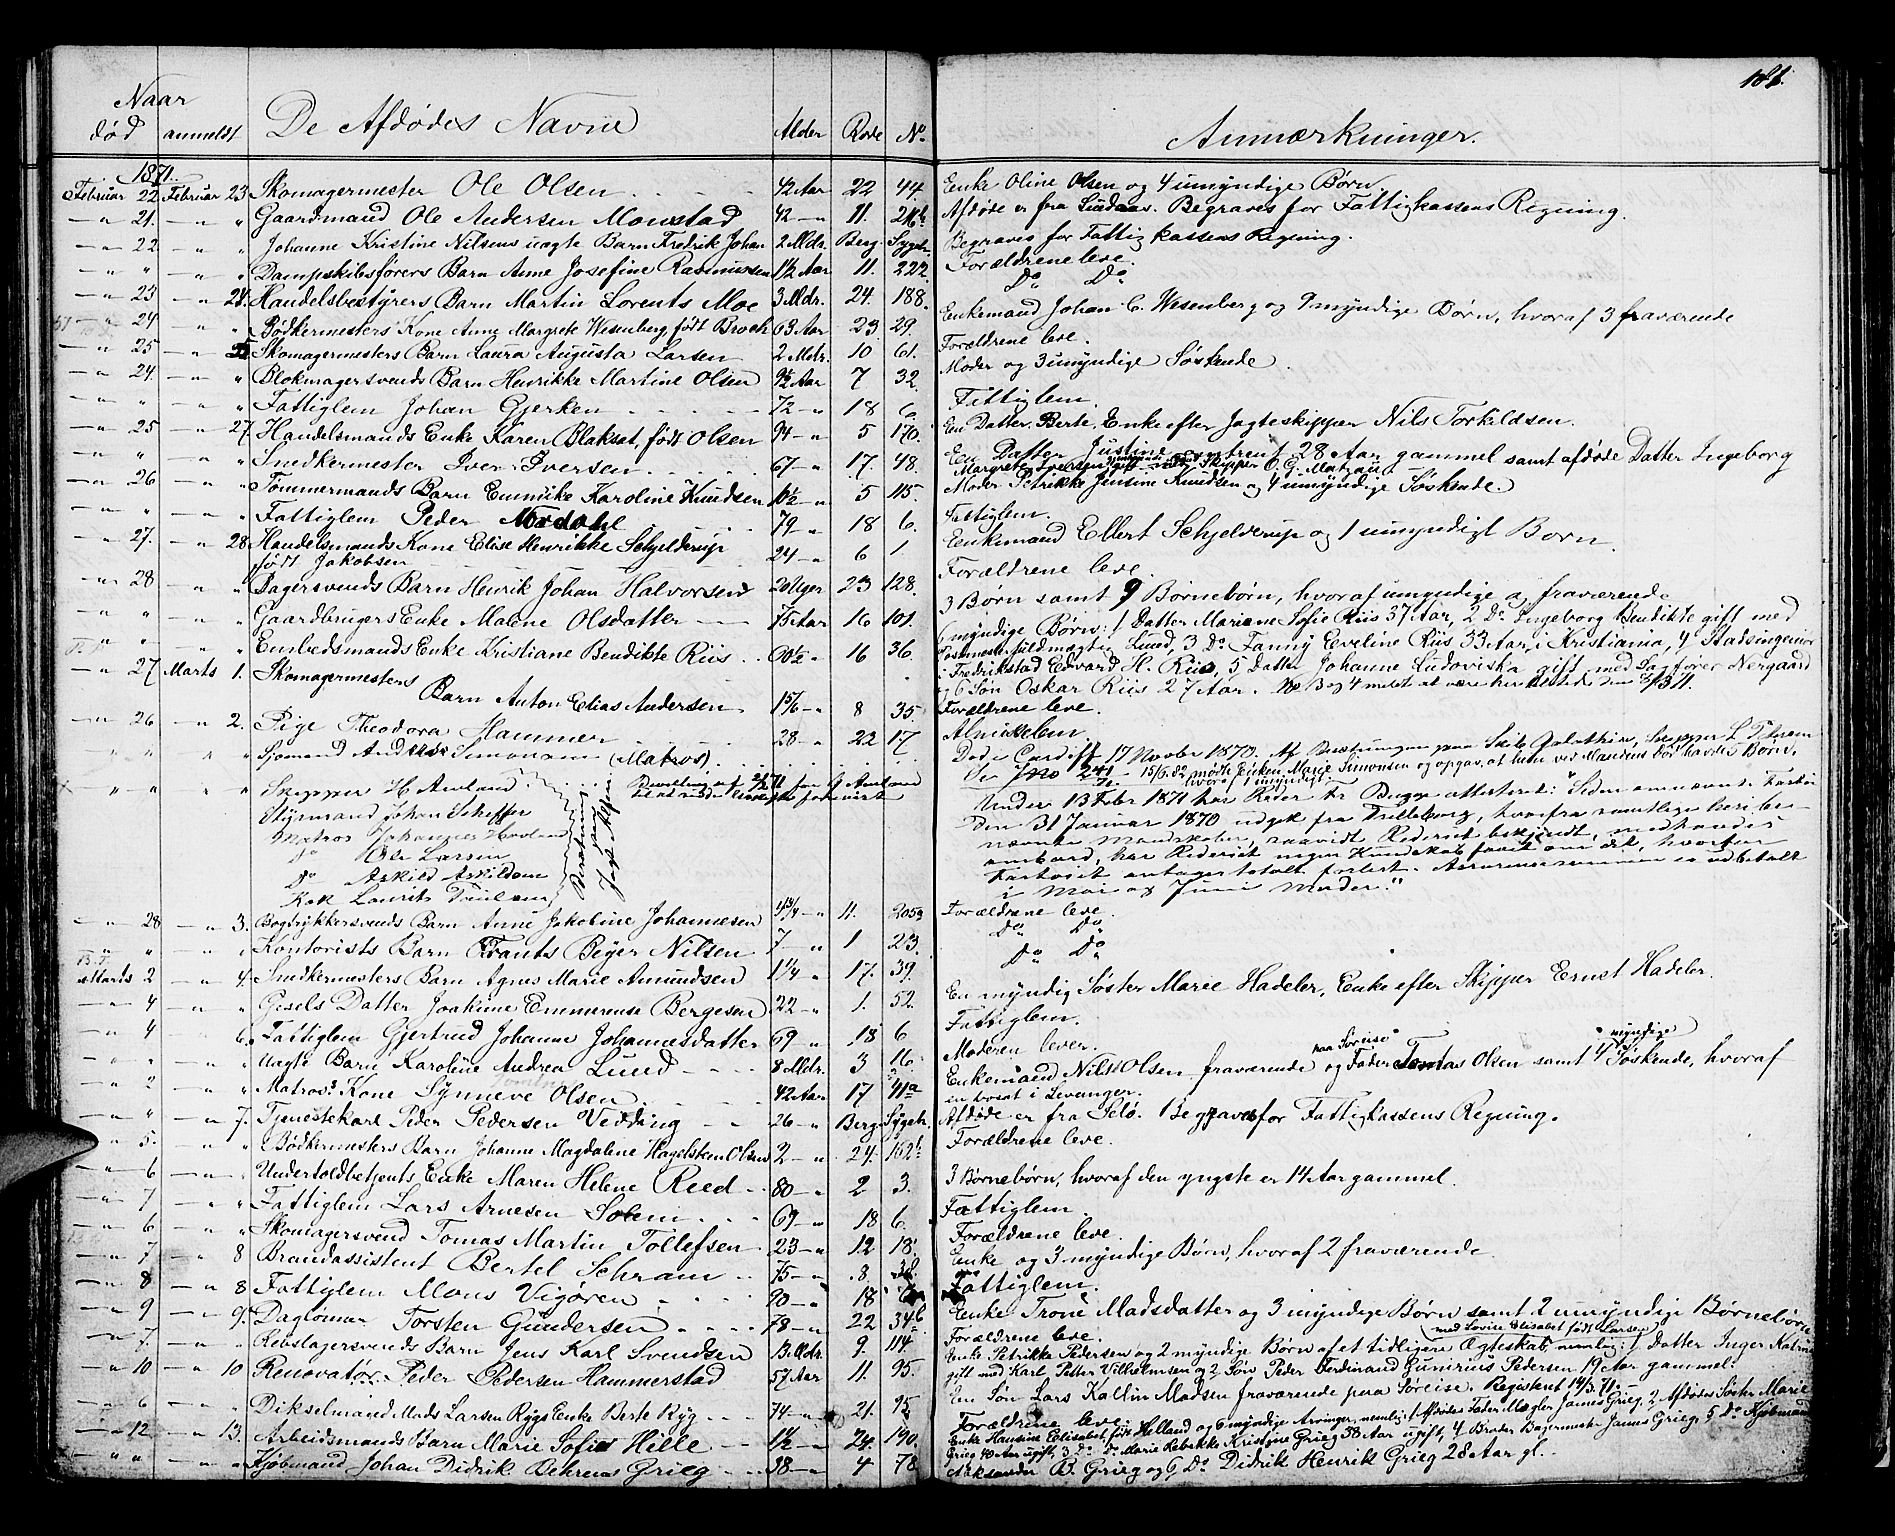 181.
Naar
død anmeldt De Afdødes Navne Alder Rode No. Anmærkninger.
1871.
Februar 22 Februar 23. Skomagermester Ole Olsen 42 Aar 22 44. Enke Oline Olsen og 4 umyndige Børn.
— " — 21. — " — " Gaardmand Ole Andersen Monstad 42 — " 11. Afdøde er fra Lindaas. Begraves for Fattigkassens Regning.
— " — 22 — " — " Johanne Kristine Nilsens uægte Barn Fredrik Johan 2 Mdr. Berg. Sygeh. Begraves for Fattigkassens Regning.
— " — " — " — " Dampskibsførers Barn Anne Josefine Rasmussen 1½ Aar 11. 222 Forældrene leve.
— " — 23 — " — 24. Handelsbestyrers Barn Martin Lorents Moe 3 Mdr. 24. 188. Do Do
— " — 24 — " — " Bødkermesters Kone Anne Margrete Wesenberg, født Broch 63 Aar 23. 29. Enkemand Johan C. Wesenberg og 9 myndige Børn, hvoraf 3 fraværende
— " — 25 — " — Skomagermesters Barn Laura Augusta Larsen 2 Mdr. 10 61. Forældrene leve.
— " — 24. — " — " Blokmagersvends Barn Henrikke Martine Olsen 9½ Aar 7 32. Moder og 3 umyndige Søskende.
— " — " — " — " Fattiglem Johan Gjerken 72 — " 18 6. Fattiglem.
— " — 25 — " — 27. Handelsmands Enke Karen Blaksat, født Olsen 94 — " 5 170. En Datter Berte, Enke efter Jagteskipper Nils Torkildsen.
— " — " — " — " Snedkermester Iver Iversen 67 — " 17. 48. En Datter Justine omtrent 28 Aar gammel samt afdøde Datter Ingeborg
Margrete Iversen gift med Skipper O. G. Matzau
— " — 26 — " — " Tømmermands Barn Emmike Karoline Knudsen 10½ — " 5 115. Moder Petrikke Jensine Knudsen og 4 umyndige Søskende.
— " — " — " — " Fattiglem Peder Nordahl 79 — " 18 6. Fattiglem.
— " — 27. — " — 28 Handelsmands Kone Elise Henrikke Schjelderup 24 — " 6 1 Enkemand Ellert Schjelderup og 1 umyndigt Barn.
født Jakobsen
— " — 28 — " — " Bagersvends Barn Henrik Johan Halvorsen 20 Uger 23 128. Forældrene leve.
— " — " — " — " Gaardbrugers Enke Malene Olsdatter 75 Aar 16 101. 3 Børn samt 9 Børnebørn, hvoraf umyndige og fraværende
— " — " — " — " Embedsmands Enke Kristiane Bendikte Riis 60½ " 16 36. 6 myndige Børn: 1 Datter Mariane Sofie Riis 37 Aar, 2 Do Ingeborg Bendikte gift med
Postmesterfuldmægtig Lund, 3 Do Fanny Eveline Riis 33 Aar, i Kristiania, 4 Stadsingeniør
i Fredrikstad Edvard H. Riis, 5 Datter Johanne Ludoviska gift med Sagfører Nergaard
og 6 Søn Oskar Riis 27 Aar.
— " — 27 Marts 1. Skomagermesters
Barn Anton Elias Andersen 1 5/6 — " 8 35. Forældrene leve.
— " — 26 — " — 2. Pige Theodora Hammer 28 — " 22 17 Almislem.
Sjømand Andreas Simonsen (Matros) Død i Cardiff 17 Novbr 1870. Af Besætningen paa Skib Galathea, Skipper
Skipper H. Amland
Styrmand Johan Scheffer Under 13 Febr 1871 har Reder Bugge attesteret: "Siden omnævnte Fartøi
Matros Johannes Hovland den 31 Januar 1870 udgik fra Trelleborg, hvorfra samtlige heri be-
Do Ole Larsen nævnte Mandskaber, saavidt Rederiet bekjendt, medhavdes
Do Askild Askildsen ombord, har Rederiet ingen Kundskab faaet om det, hvorfor
Kok Laurits Fartøiet antages totalt forlist. Assurancesummen er udbetalt
i Mai og Juni Maaned."
— " — 28 — " — 3. Bogtrykkersvends Barn Anne Jakobine Johannesen 4 3/4 — " 11. 205a Forældrene leve.
" — " — " Kontorists Barn Frants Beyer Nilsen 7 — " 1 23. Do Do
Marts 2 — " — 4. Snedkermesters Barn Agnes Marie Amundsen 1¼ " 17. 39. Do Do
— " — 4 — " — " Gjesels Datter Joakime Emmerense Bergesen 22 " 1. 52. En myndig Søster Marie Hadeler, Enke efter Skipper Ernst Hadeler.
— " — 4 6. Fattiglem Gjertrud Johanne Johannesdatter 69 — " 18 6 Fattiglem.
— " — " — " — " Uægte Barn Karoline Andrea Lund 8 Mdr. 3 16. Moderen lever.
— " — 2 — " — " Matros' Kone Synneve Olsen 42 Aar 17 41a Enkemand Nils Olsen fraværende paa Søreise og Fader Tomas Olsen samt 4 myndige Søskende, hvoraf
en bosat i Levanger.
— " — " — " — 7. Tjenestekarl Peder Pedersen Vedding 26 — " Berg. Sygeh. Afdøde er fra Selø. Begraves for Fattigkassens Regning.
— " — 5. — " — " Bødkermesters Barn Johanne Magdalene Hagelsten Olsen 2 — " 24. 162b Forældrene leve.
— " — 6 — " — " Undertoldbetjents Enke Maren Helene Reed 80 — " 2 3. 3 Børnebørn, hvoraf den yngste er 14 Aar gammel.
— " — 7 — " — " Fattiglem Lars Arnesen Solem 69 — " 18 6. Fattiglem.
— " — 6 — " — " Skomagersvend Tomas Martin Tollefsen 23 — " 12 18. Forældrene leve.
— " — 7 — " — 8 Brandassistent Bertel Schram 75 — " 8 38. Enke og 3 myndige Børn, hvoraf 2 fraværende.
— " — 8 — " — 8 Fattiglem Mons Vigøren 90 — " 18 Fattiglem.
— " — 9 — " — 9. Daglønner Torsten Gundersen 78 — " 22 34b Enke Trone Madsdatter og 3 myndige Børn samt 2 umyndige Børnebørn
— " — 7. — " — " Rebslagersvends Barn Jens Karl Svendsen 13 Mdr. 9. 114. Forældrene leve. med Lovise Elisabet født Larsen
— " — 10 — " — 10 Renovatør Peder Pedersen Hammerstad 57 Aar 11. 95. Enke Petrikke Pedersen og 2 myndige Børn af et tidligere Ægteskab, nemlig: 1 Datter Inger
gift med Karl Petter Vilhelmsen og 2 Søn Peder Ferdinand Gunerius Pedersen 19 Aar gammel.
— " — 6 — " — " Dikselmand Mads Larsen Rygs Enke Berte Ryg 74 — " 21. 95 En Søn Lars Kallin Madsen fraværende paa Søreise. Registeret 14/3.71.
— " — 12 — " — 13. Arbeidsmands Barn Marie Sofie Helle 1½ — " 24. 190. Forældrene leve.
" " — " — " Kjøbmand Johan Didrik Behrens Grieg 38 — " 4 78 Enke Hansine Elisabet, født Helland og 6 myndige Arvinger, nemlig: 1 Afdødes Fader Mægler James Grieg, 2 Afdødes Søster Marie
Grieg 40 Aar ugift, 3 Do Do Marie Rebekka Kristine Grieg 38 Aar ugift, 4 Broder Bagermester James Grieg, 5 Do Kjøbmand
Aleksander B. Grieg og 6 Do Didrik Henrik Grieg 28 Aar gl.